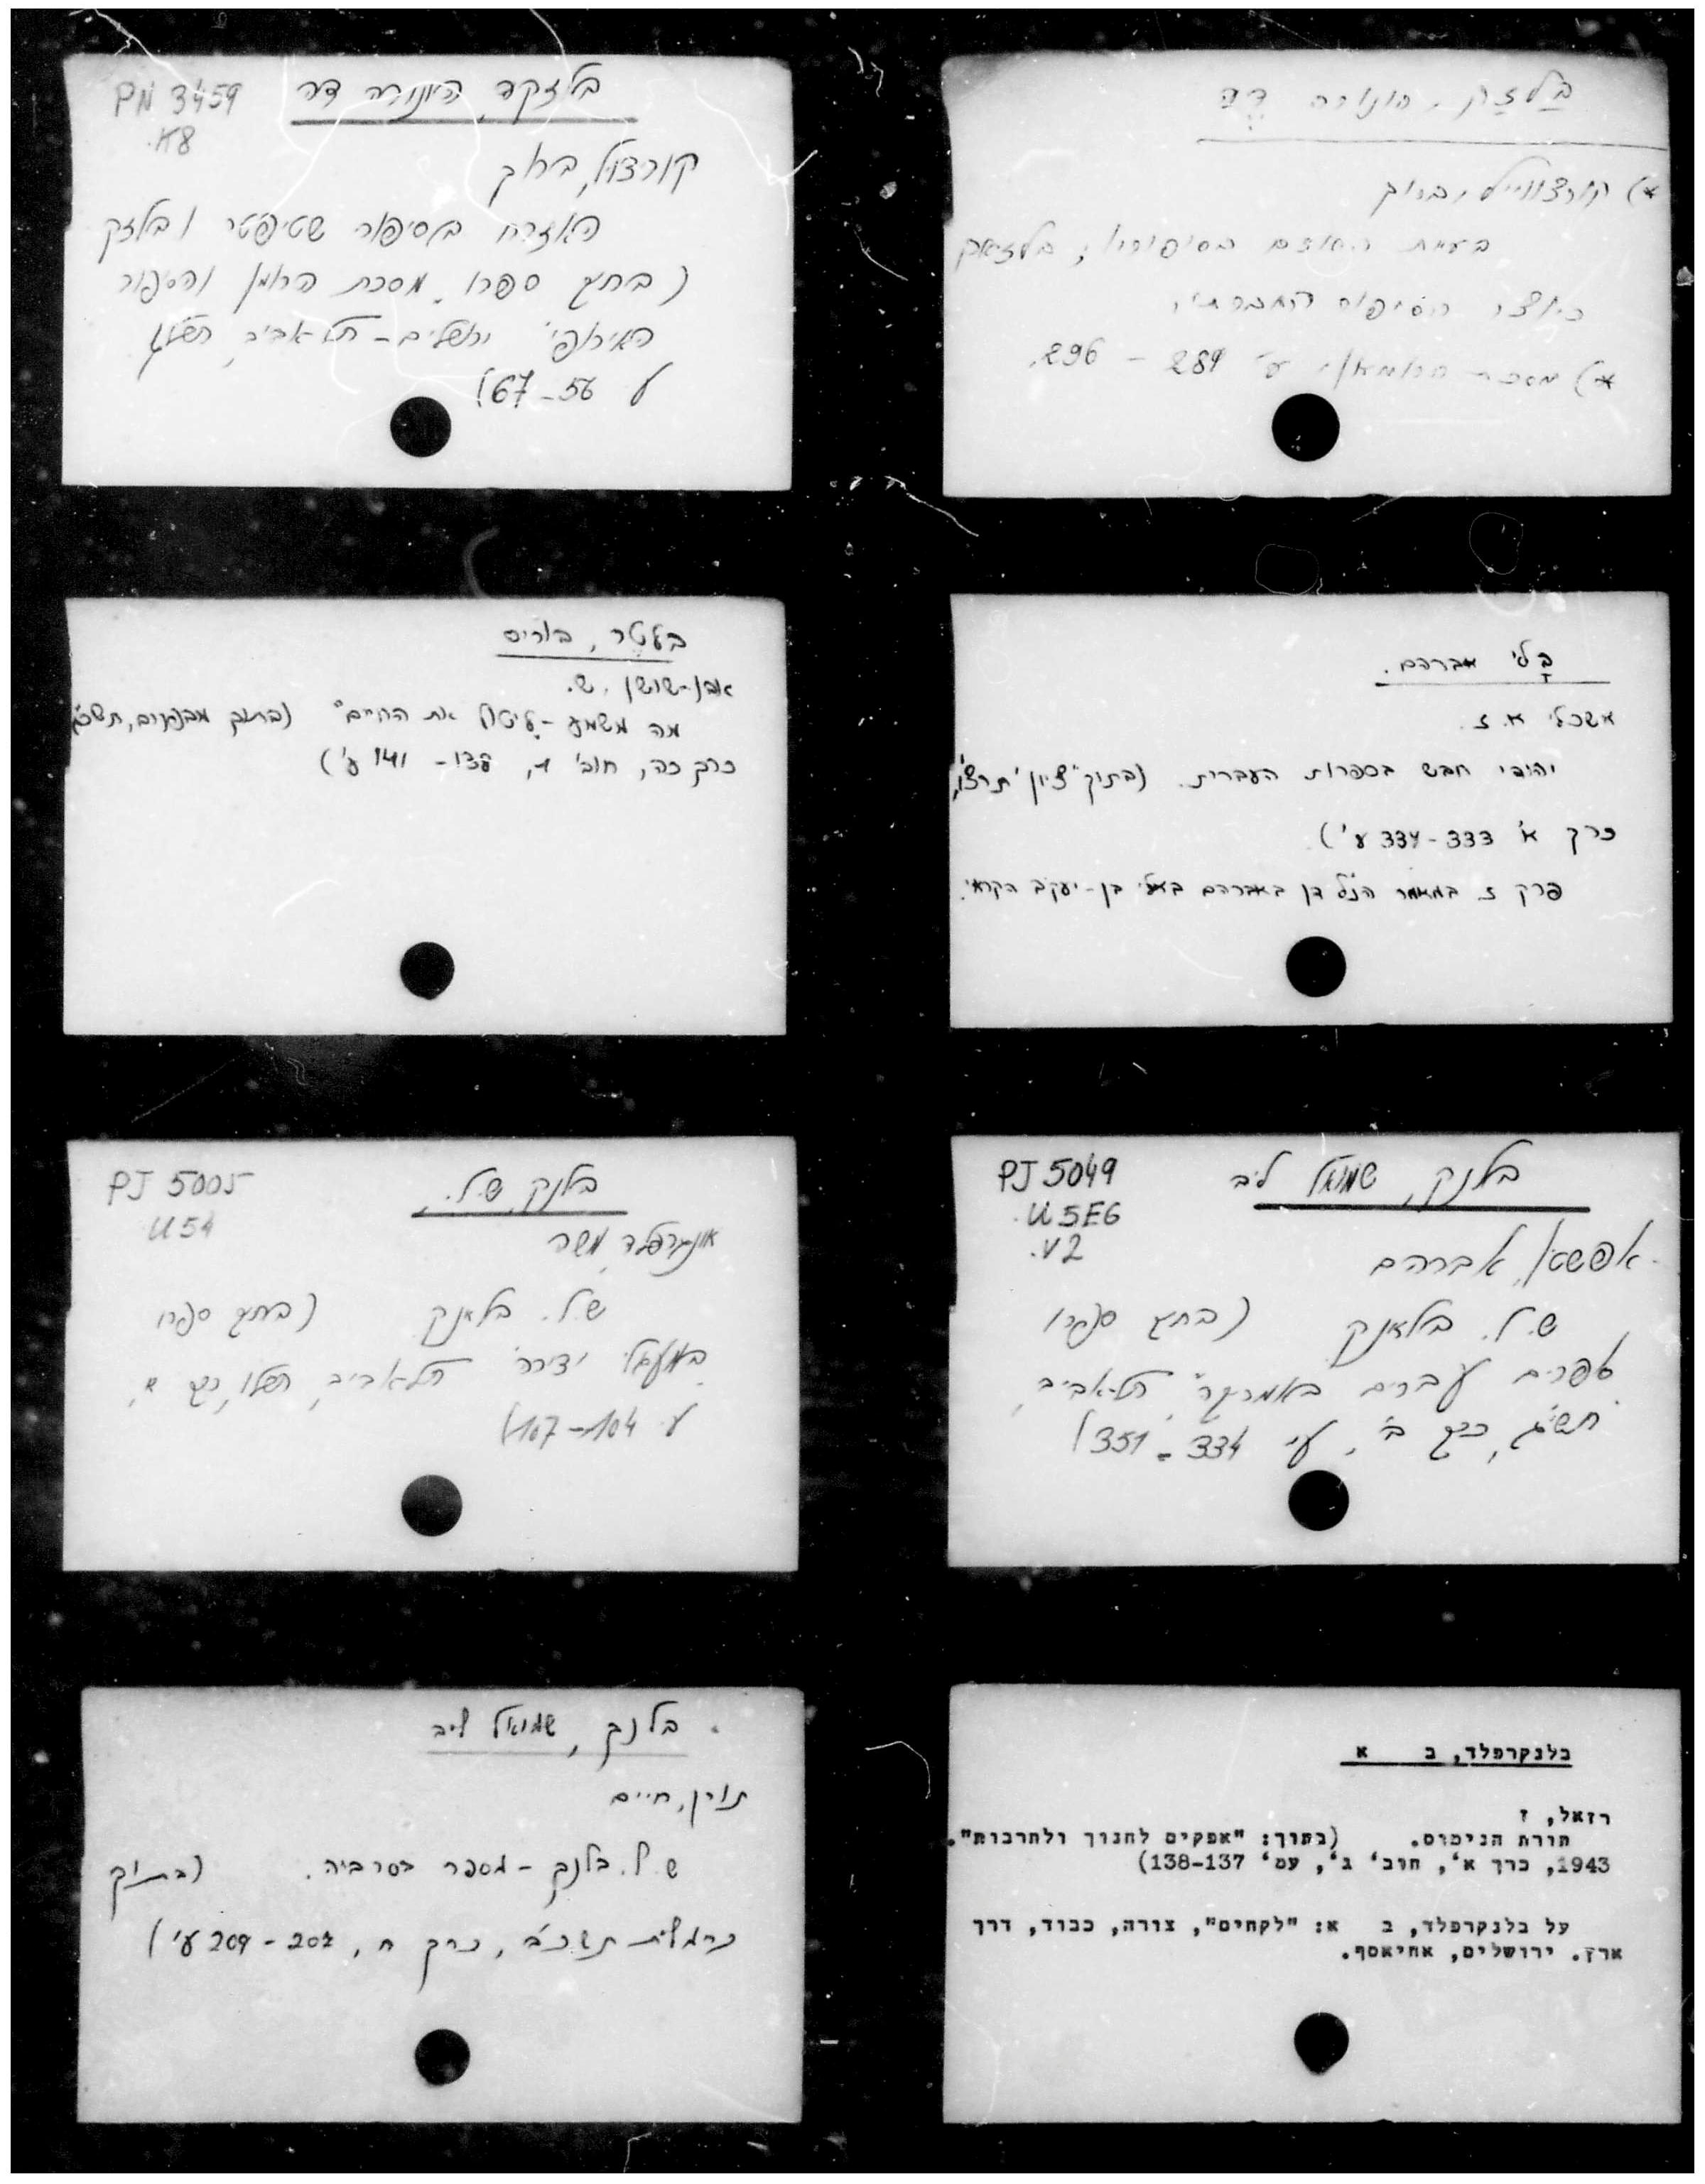 PN 3459
.K8
בלזק, הונורה דה
קורצויל, ברוך
האזרח בסיפור שטיפטר ובלזק
(בתוך ספרו "מסכת הרומן והסיפור
האירופי" ירושלים - תל-אביב, תשל"ג
ע 56-67)
בלזק, הונורה דה
*) קורצווייל, ברוך
בעיית בסיפוריו; בלזאק
כיוצר הסיפור החברתי,
*) מסכת הרומאן, ע' 289 - 296.
בלטר, בוריס
אבן-שושן, ש.
מה משמע - את החיים" (בתוך מבפנים, תשכ"ג
כרך כה, חוב' 138 - 141 ע')
בלי אברהם.
אשכלי א. ז.
יהודי חבש בספרות העברית. (בתוך "ציון" תרצ"ו,
כרך א' 333-334 ע').
פרק ז. במאמר הנ"ל דן באברהם באלי בן-יעקב הקראי.
PJ 5005
U54
בלנק, ש.ל.
אונגרפלד, משה
ש.ל. בלאנק (בתוך ספרו
במעגלי יצירה" תל-אביב, תשל"ו, כרך א,
ע 104-107)
PJ 5049
.U5E6
.V2
בלנק, שמואל ליב
אפשטיין, אברהם
ש.ל. בלאנק (בתוך ספרו
"סופרים עברים באמריקה" תל-אביב,
תשי"ג, כרך ב', ע' 334-351)
בלנק, שמואל ליב
תורן, חיים
ש.ל. בלנק - מספר בסרביה. (בתוך
כרמלית תשכ"ב, כרך ח, 202 - 209 ע')
בלנקרפלד, ב א
רזאל, ז
תורת הנימוס. (בתוך: "אפקים לחנוך ולתרבות".
1943, כרך א', חוב' ג', עמ' 138-137)
על בלנקרפלד, ב א: "לקחים", צורה, כבוד, דרך
ארץ. ירושלים, אחיאסף.